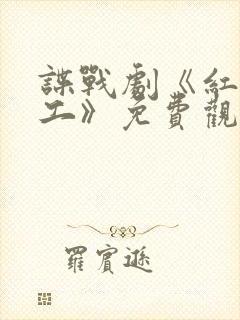 諜戰劇《紅
工》免費觀
羅賓遜